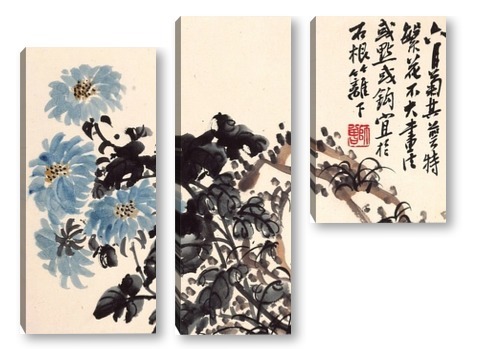 六月菊其蕚特
繁花不大画法
或點或鈎宜於
石根竹籬下